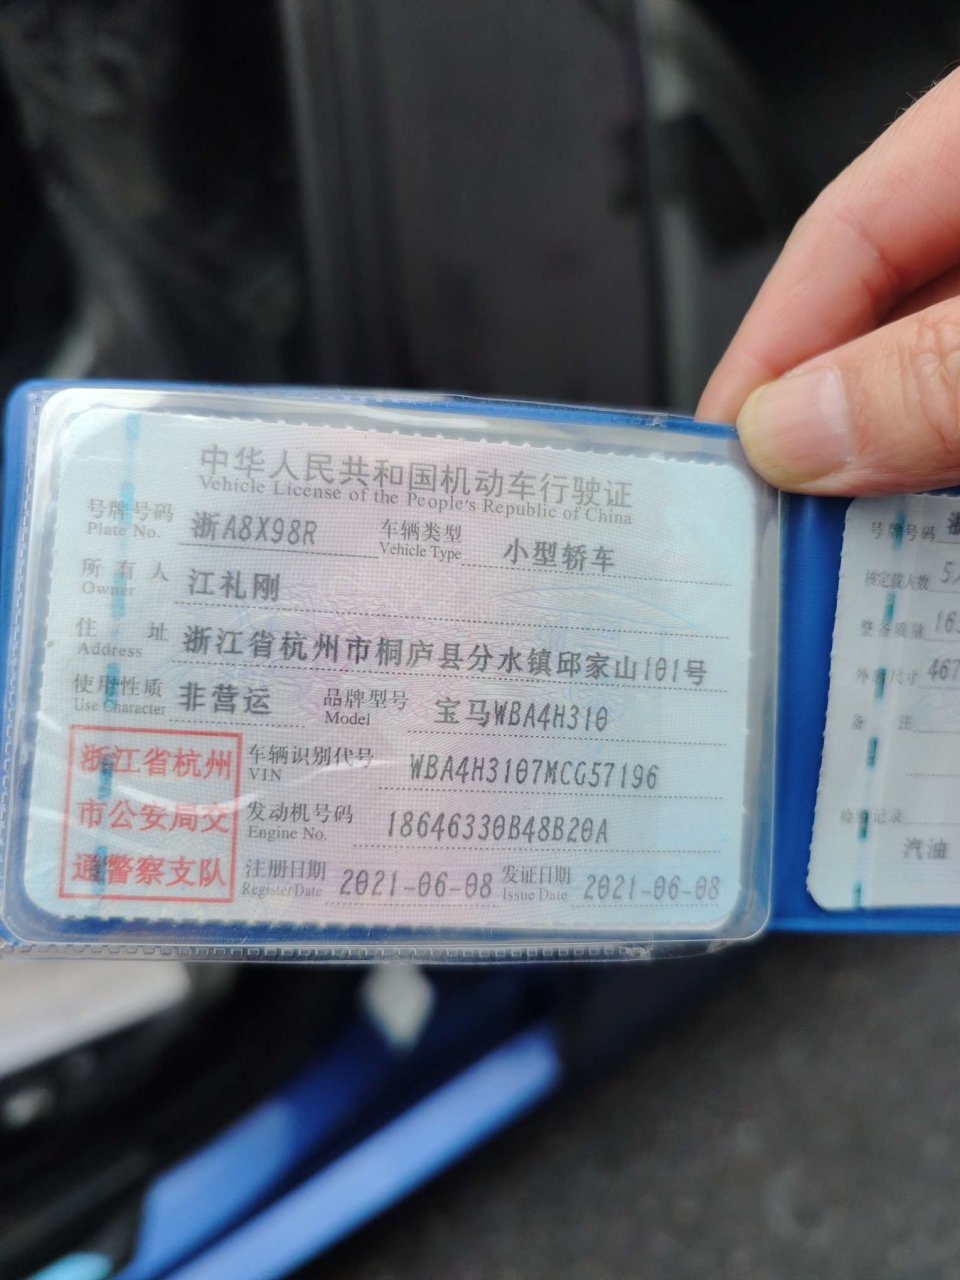 中华人民共和国机动车行驶证
Vehicle License of the People's Republic of China
号牌号码 浙A8X98R 车辆类型 小型轿车
Plate No. Vehicle Type
所有人 江礼刚
Owner
住址 浙江省杭州市桐庐县分水镇邱家山101号
Address
使用性质 非营运 品牌型号 宝马WBA4H310
Use Character Model
浙江省杭州
市公安局交
通警察支队
车辆识别代号 WBA4H3107MCG57196
VIN
发动机号码 18646330B48B20A
Engine No.
注册日期 2021-06-08 发证日期 2021-06-08
Register Date Issue Date
号牌号码 浙
核定载人数 5
整备质量 163
外廓尺寸 467
备注
检验记录
汽油